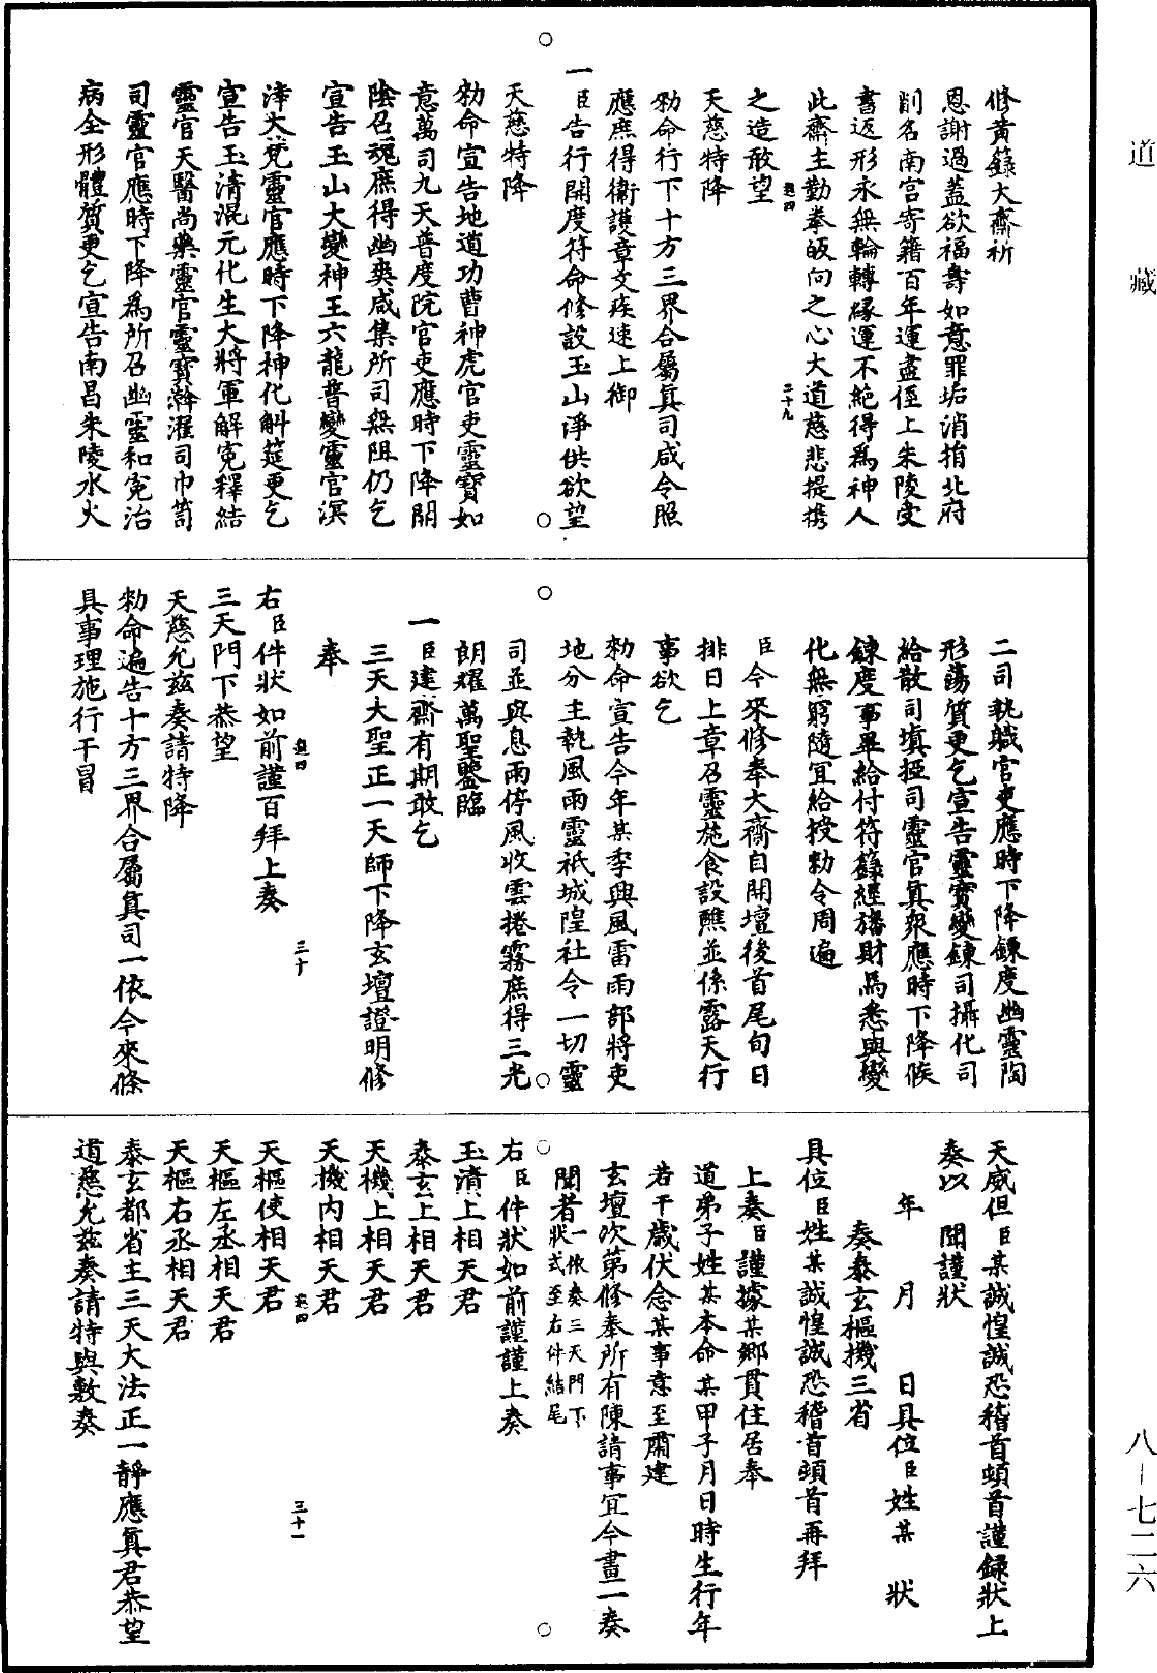 道藏
修黃籙大齋祈
恩謝過蓋欲福壽如意罪垢消揹北府
削名南宮寄籍百年運盡徑上朱陵受
書返形永無輪轉緣運不絕得為神人
此齋主勤拳皈向之心大道慈悲提携
二十九
之造敢望
天慈特降
勑命行下十方三界合屬真司咸令照
應庶得衛護章文疾速上御
一臣告行開度符命修設玉山淨供欲望
天慈特降
勑命宣告地道功曹神虎官吏靈寶如
意萬司九天普度院官吏應時下降開
陰召魂庶得幽爽咸集所司無阻仍乞
宣告玉山大變神王六龍普變靈官溟
涬大梵靈官應時下降神化斛筵更乞
宣告玉清混元化生大將軍解冤釋結
靈官天醫尚藥靈官靈寶澣濯司巾笥
司靈官應時下降為所召幽靈和冤治
病全形體質更乞宣告南昌朱陵水火
二司執職官吏應時下降鍊度幽靈陶
形蕩質更乞宣告靈寶變鍊司攝化司
給散司填掗司靈官真衆應時下降候
鍊度事畢給付符籙經旛財馬悉與變
化無窮隨宜給授勑令周遍
臣今來修奉大齋自開壇後首尾旬日
排日上章召靈施食設醮並係露天行
事欲乞
勑命宣告今年某季興風雷雨部將吏
地分主執風雨靈祇城隍社令一切靈
司並與息雨停風收雲捲霧庶得三光
朗耀萬聖鑒臨
一臣建齋有期敢乞
三天大聖正一天師下降玄壇證明修
奉
三十
右臣件狀如前謹百拜上奏
三天門下恭望
天慈允兹奏請特降
勑命遍告十方三界合屬真司一依今來條
具事理施行干冒
天威但臣某誠惶誠恐稽首頓首謹録狀上
奏以聞謹狀
年月日具位臣姓某狀
奏泰玄樞機三省
具位臣姓某誠惶誠恐稽首頓首再拜
上奏臣謹據某鄉貫住居奉
道弟子姓某本命某甲子月日時生行年
若干歲伏念某事意至肅建
玄壇次第修奉所有陳請事宜今畫一奏
聞者一依奏三天門下狀式至右件結尾
右臣件狀如前謹謹上奏
玉清上相天君
泰玄上相天君
天機上相天君
天機内相天君
三十一
天樞使相天君
天樞左丞相天君
天樞右丞相天君
泰玄都省主三天大法正一靜應真君恭望
道慈允兹奏請特與敷奏
八—七二六